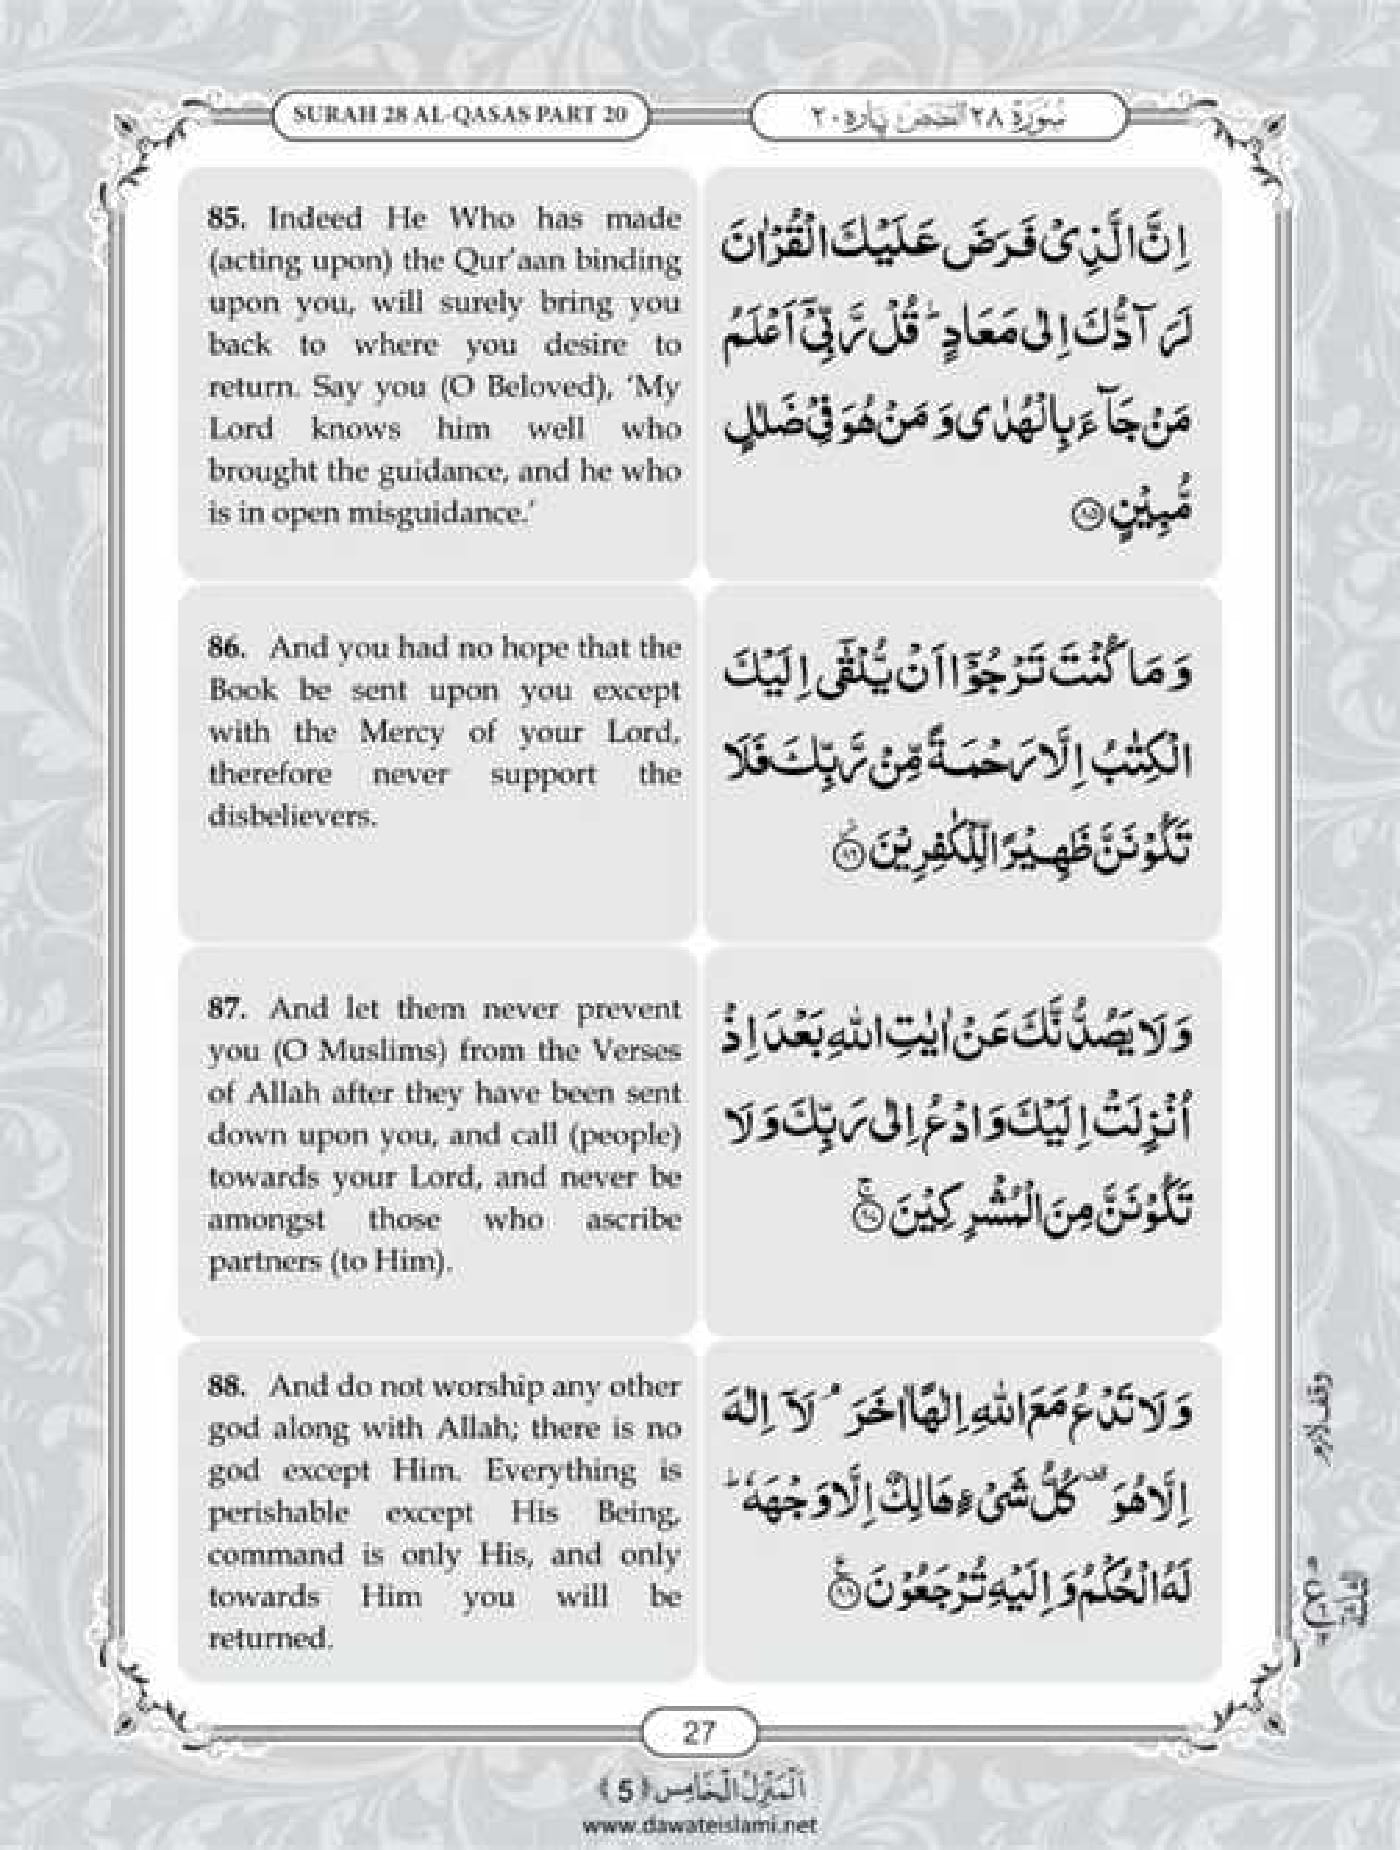 SURAH 28 AL-QASAS PART 20
سُوْرَةُ ٢٨ اَلْقَصَصْ پارہ ٢٠
85. Indeed He Who has made
(acting upon) the Qur’aan binding
upon you, will surely bring you
back to where you desire to
return. Say you (O Beloved), ‘My
Lord knows him well who
brought the guidance, and he who
is in open misguidance.’
اِنَّ الَّذِیْ فَرَضَ عَلَیْكَ الْقُرْاٰنَ
لَرَآدُّكَ اِلٰى مَعَادٍ ؕ قُلْ رَّبِّیْۤ اَعْلَمُ
مَنْ جَآءَ بِالْهُدٰى وَ مَنْ هُوَ فِیْ ضَلٰلٍ
مُّبِیْنٍ ﴿۸۵﴾
86. And you had no hope that the
Book be sent upon you except
with the Mercy of your Lord,
therefore never support the
disbelievers.
وَ مَا كُنْتَ تَرْجُوْۤا اَنْ یُّلْقٰۤى اِلَیْكَ
الْكِتٰبُ اِلَّا رَحْمَةً مِّنْ رَّبِّكَ فَلَا
تَكُوْنَنَّ ظَهِیْرًا لِّلْكٰفِرِیْنَ ﴿۸۶﴾
87. And let them never prevent
you (O Muslims) from the Verses
of Allah after they have been sent
down upon you, and call (people)
towards your Lord, and never be
amongst those who ascribe
partners (to Him).
وَ لَا یَصُدُّنَّكَ عَنْ اٰیٰتِ اللّٰهِ بَعْدَ اِذْ
اُنْزِلَتْ اِلَیْكَ وَ ادْعُ اِلٰى رَبِّكَ وَ لَا
تَكُوْنَنَّ مِنَ الْمُشْرِكِیْنَ ﴿۸۷﴾
88. And do not worship any other
god along with Allah; there is no
god except Him. Everything is
perishable except His Being,
command is only His, and only
towards Him you will be
returned.
وَ لَا تَدْعُ مَعَ اللّٰهِ اِلٰهًا اٰخَرَ ۘ لَاۤ اِلٰهَ
اِلَّا هُوَ ۫ كُلُّ شَیْءٍ هَالِكٌ اِلَّا وَجْهَهٗ ؕ
لَهُ الْحُكْمُ وَ اِلَیْهِ تُرْجَعُوْنَ ﴿۸۸﴾
وقف لازم
27
اَلْمَنْزِلُ الْخَامِس ﴿5﴾
www.dawateislami.net